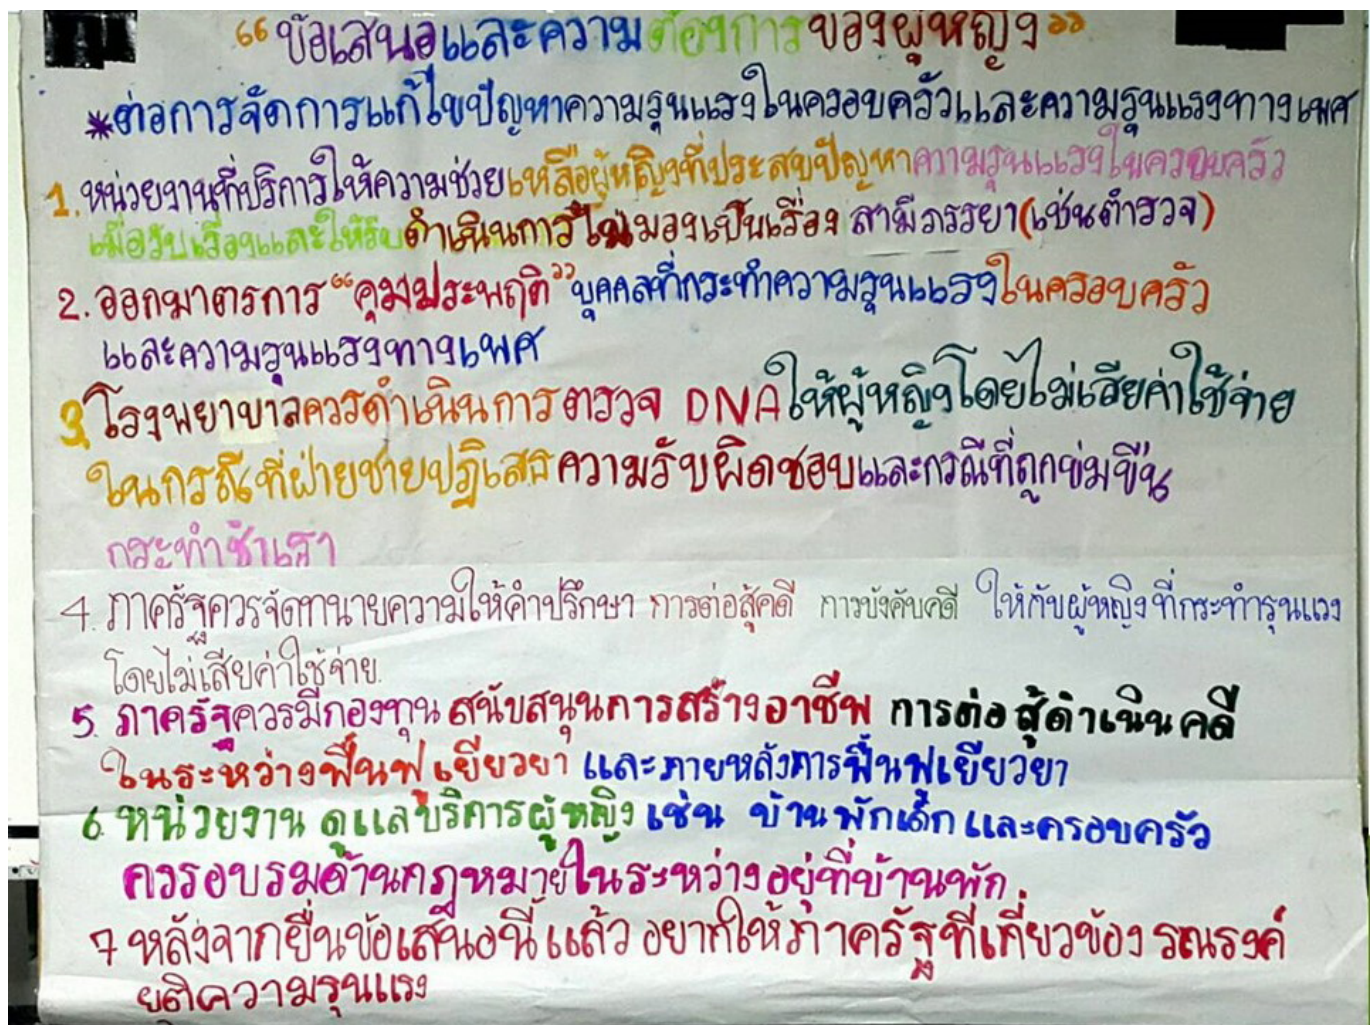 “ข้อเสนอและความต้องการของผู้หญิง”
*ต่อการจัดการแก้ไขปัญหาความรุนแรงในครอบครัวและความรุนแรงทางเพศ
1. หน่วยงานที่บริการให้ความช่วยเหลือผู้หญิงที่ประสบปัญหาความรุนแรงในครอบครัว
เมื่อรับเรื่องและให้รีบดำเนินการไม่มองเป็นเรื่อง สามีภรรยา(เช่นตำรวจ)
2. ออกมาตรการ “คุมประพฤติ” บุคคลที่กระทำความรุนแรงในครอบครัว
และความรุนแรงทางเพศ
3. โรงพยาบาลควรดำเนินการ ตรวจ DNA ให้ผู้หญิงโดยไม่เสียค่าใช้จ่าย
ในกรณีที่ฝ่ายชายปฏิเสธความรับผิดชอบและกรณีที่ถูกข่มขืน
กระทำชำเรา
4. ภาครัฐควรจัดทนายความให้คำปรึกษา การต่อสู้คดี การบังคับคดี ให้กับผู้หญิง ที่กระทำรุนแรง
โดยไม่เสียค่าใช้จ่าย.
5. ภาครัฐควรมีกองทุน สนับสนุนการสร้างอาชีพ การต่อสู้ดำเนินคดี
ในระหว่างฟื้นฟูเยียวยา และภายหลังการฟื้นฟูเยียวยา
6. หน่วยงาน ดูแลบริการผู้หญิง เช่น บ้านพักเด็กและครอบครัว
ควรอบรมด้านกฎหมายในระหว่างอยู่ที่บ้านพัก
7 หลังจากยื่นข้อเสนอนี้แล้ว อยากให้ภาครัฐที่เกี่ยวข้อง รณรงค์
ยุติความรุนแรง